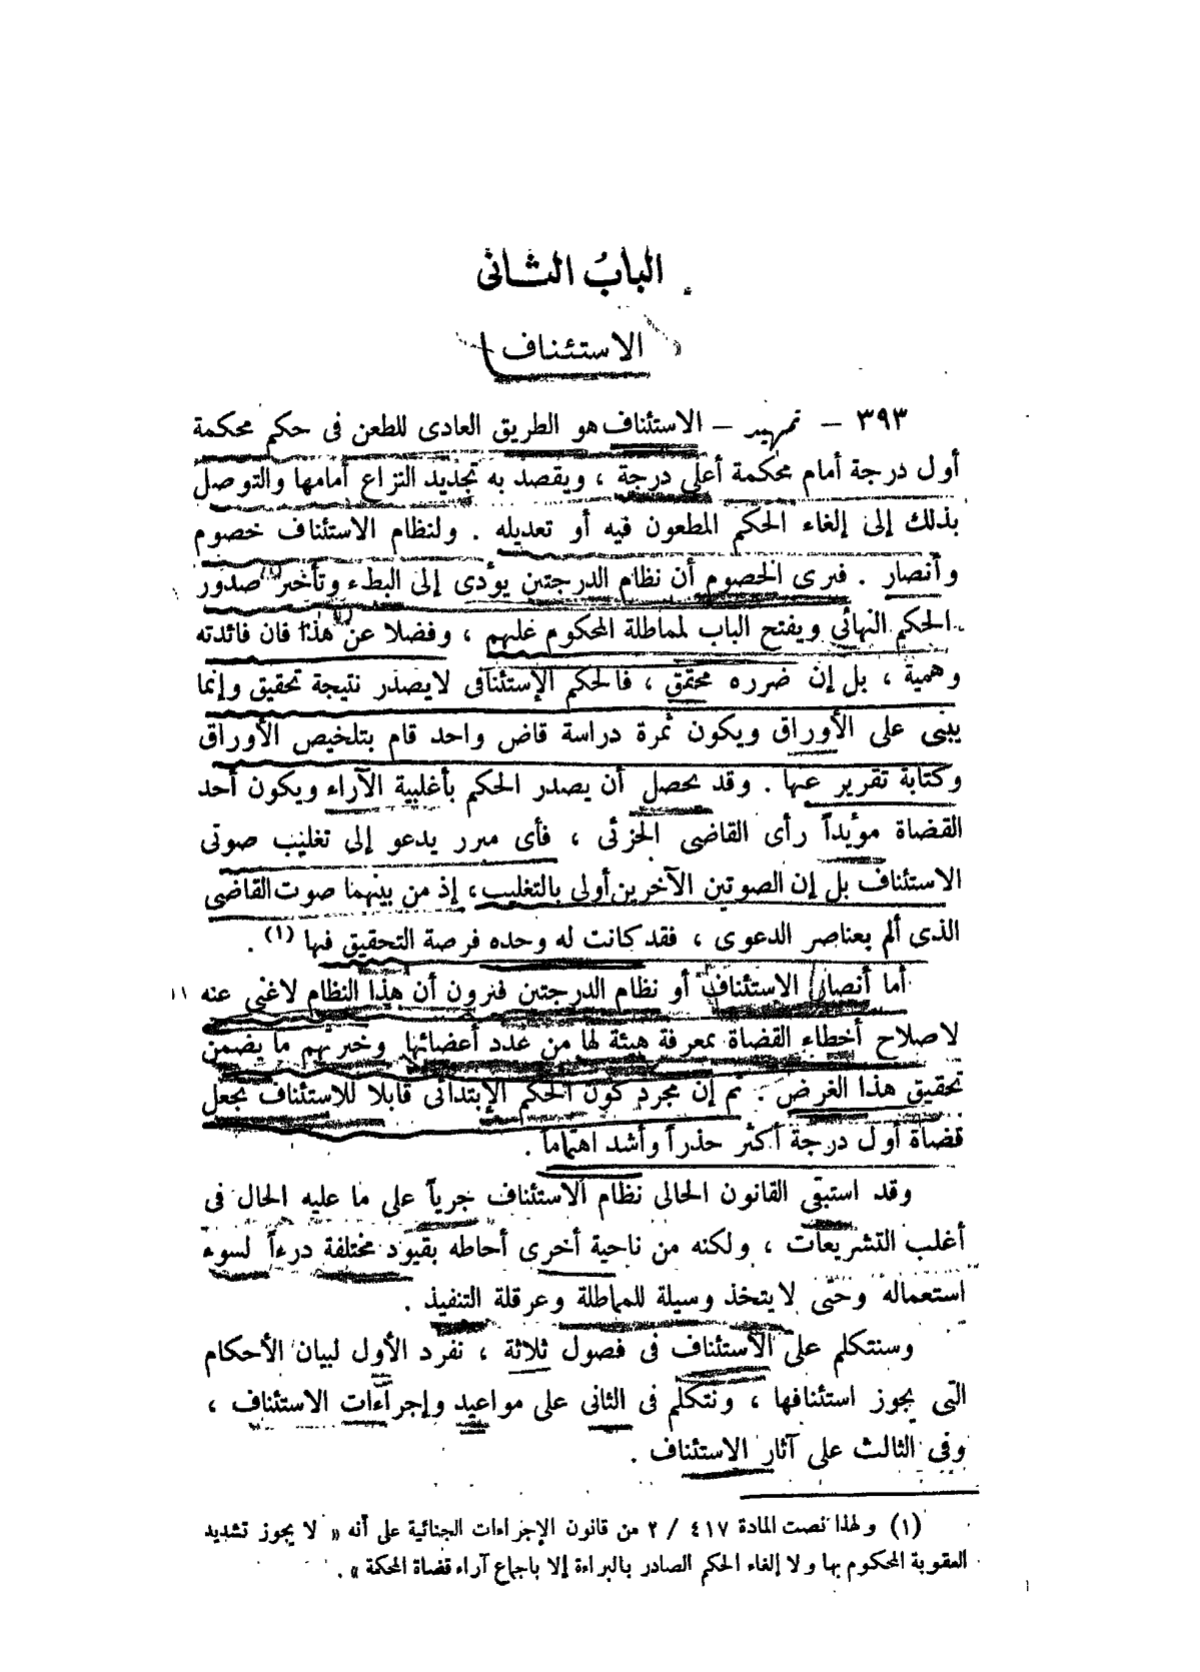 الباب الثانى
الاستئناف
٣٩٣ – تمهيد – الاستئناف هو الطريق العادى للطعن فى حكم محكمة
أول درجة أمام محكمة أعلى درجة ، ويقصد به تجديد النزاع أمامها والتوصل
بذلك إلى إلغاء الحكم المطعون فيه أو تعديله . ولنظام الاستئناف خصوم
وأنصار . فيرى الخصوم أن نظام الدرجتين يؤدى إلى البطء وتأخير صدور
الحكم النهائي ويفتح الباب لمماطلة المحكوم عليهم ، وفضلا عن هذا فان فائدته
وهمية ، بل إن ضرره محقق ، فالحكم الإستئنافى لايصدر نتيجة تحقيق وإنما
يبنى على الأوراق ويكون ثمرة دراسة قاض واحد قام بتلخيص الأوراق
وكتابة تقرير عنها . وقد يحصل أن يصدر الحكم بأغلبية الآراء ويكون أحد
القضاة مؤيداً رأى القاضى الجزئى ، فأى مبرر يدعو إلى تغليب صوتى
الاستئناف بل إن الصوتين الآخرين أولى بالتغليب ، إذ من بينهما صوت القاضى
الذى ألم بعناصر الدعوى ، فقد كانت له وحده فرصة التحقيق فيها (١) .
أما أنصار الاستئناف أو نظام الدرجتين فيرون أن هذا النظام لاغنى عنه
لاصلاح أخطاء القضاة بمعرفة هيئة لها من عدد أعضائها وخبرتهم ما يضمن
تحقيق هذا الغرض . ثم إن مجرد كون الحكم الإبتدائى قابلا للاستئناف يجعل
قضاة أول درجة أكثر حذراً وأشد اهتماماً .
وقد استبقى القانون الحالى نظام الاستئناف جرياً على ما عليه الحال فى
أغلب التشريعات ، ولكنه من ناحية أخرى أحاطه بقيود مختلفة درءاً لسوء
استعماله وحتى لايتخذ وسيلة للمماطلة وعرقلة التنفيذ .
وسنتكلم على الاستئناف فى فصول ثلاثة ، نفرد الأول لبيان الأحكام
التى يجوز استئنافها ، ونتكلم فى الثانى على مواعيد وإجراءات الاستئناف ،
وفى الثالث على آثار الاستئناف .
(١) ولهذا نصت المادة ٤١٧ / ٢ من قانون الإجراءات الجنائية على أنه « لا يجوز تشديد
العقوبة المحكوم بها ولا إلغاء الحكم الصادر بالبراءة إلا باجماع آراء قضاة المحكمة » .